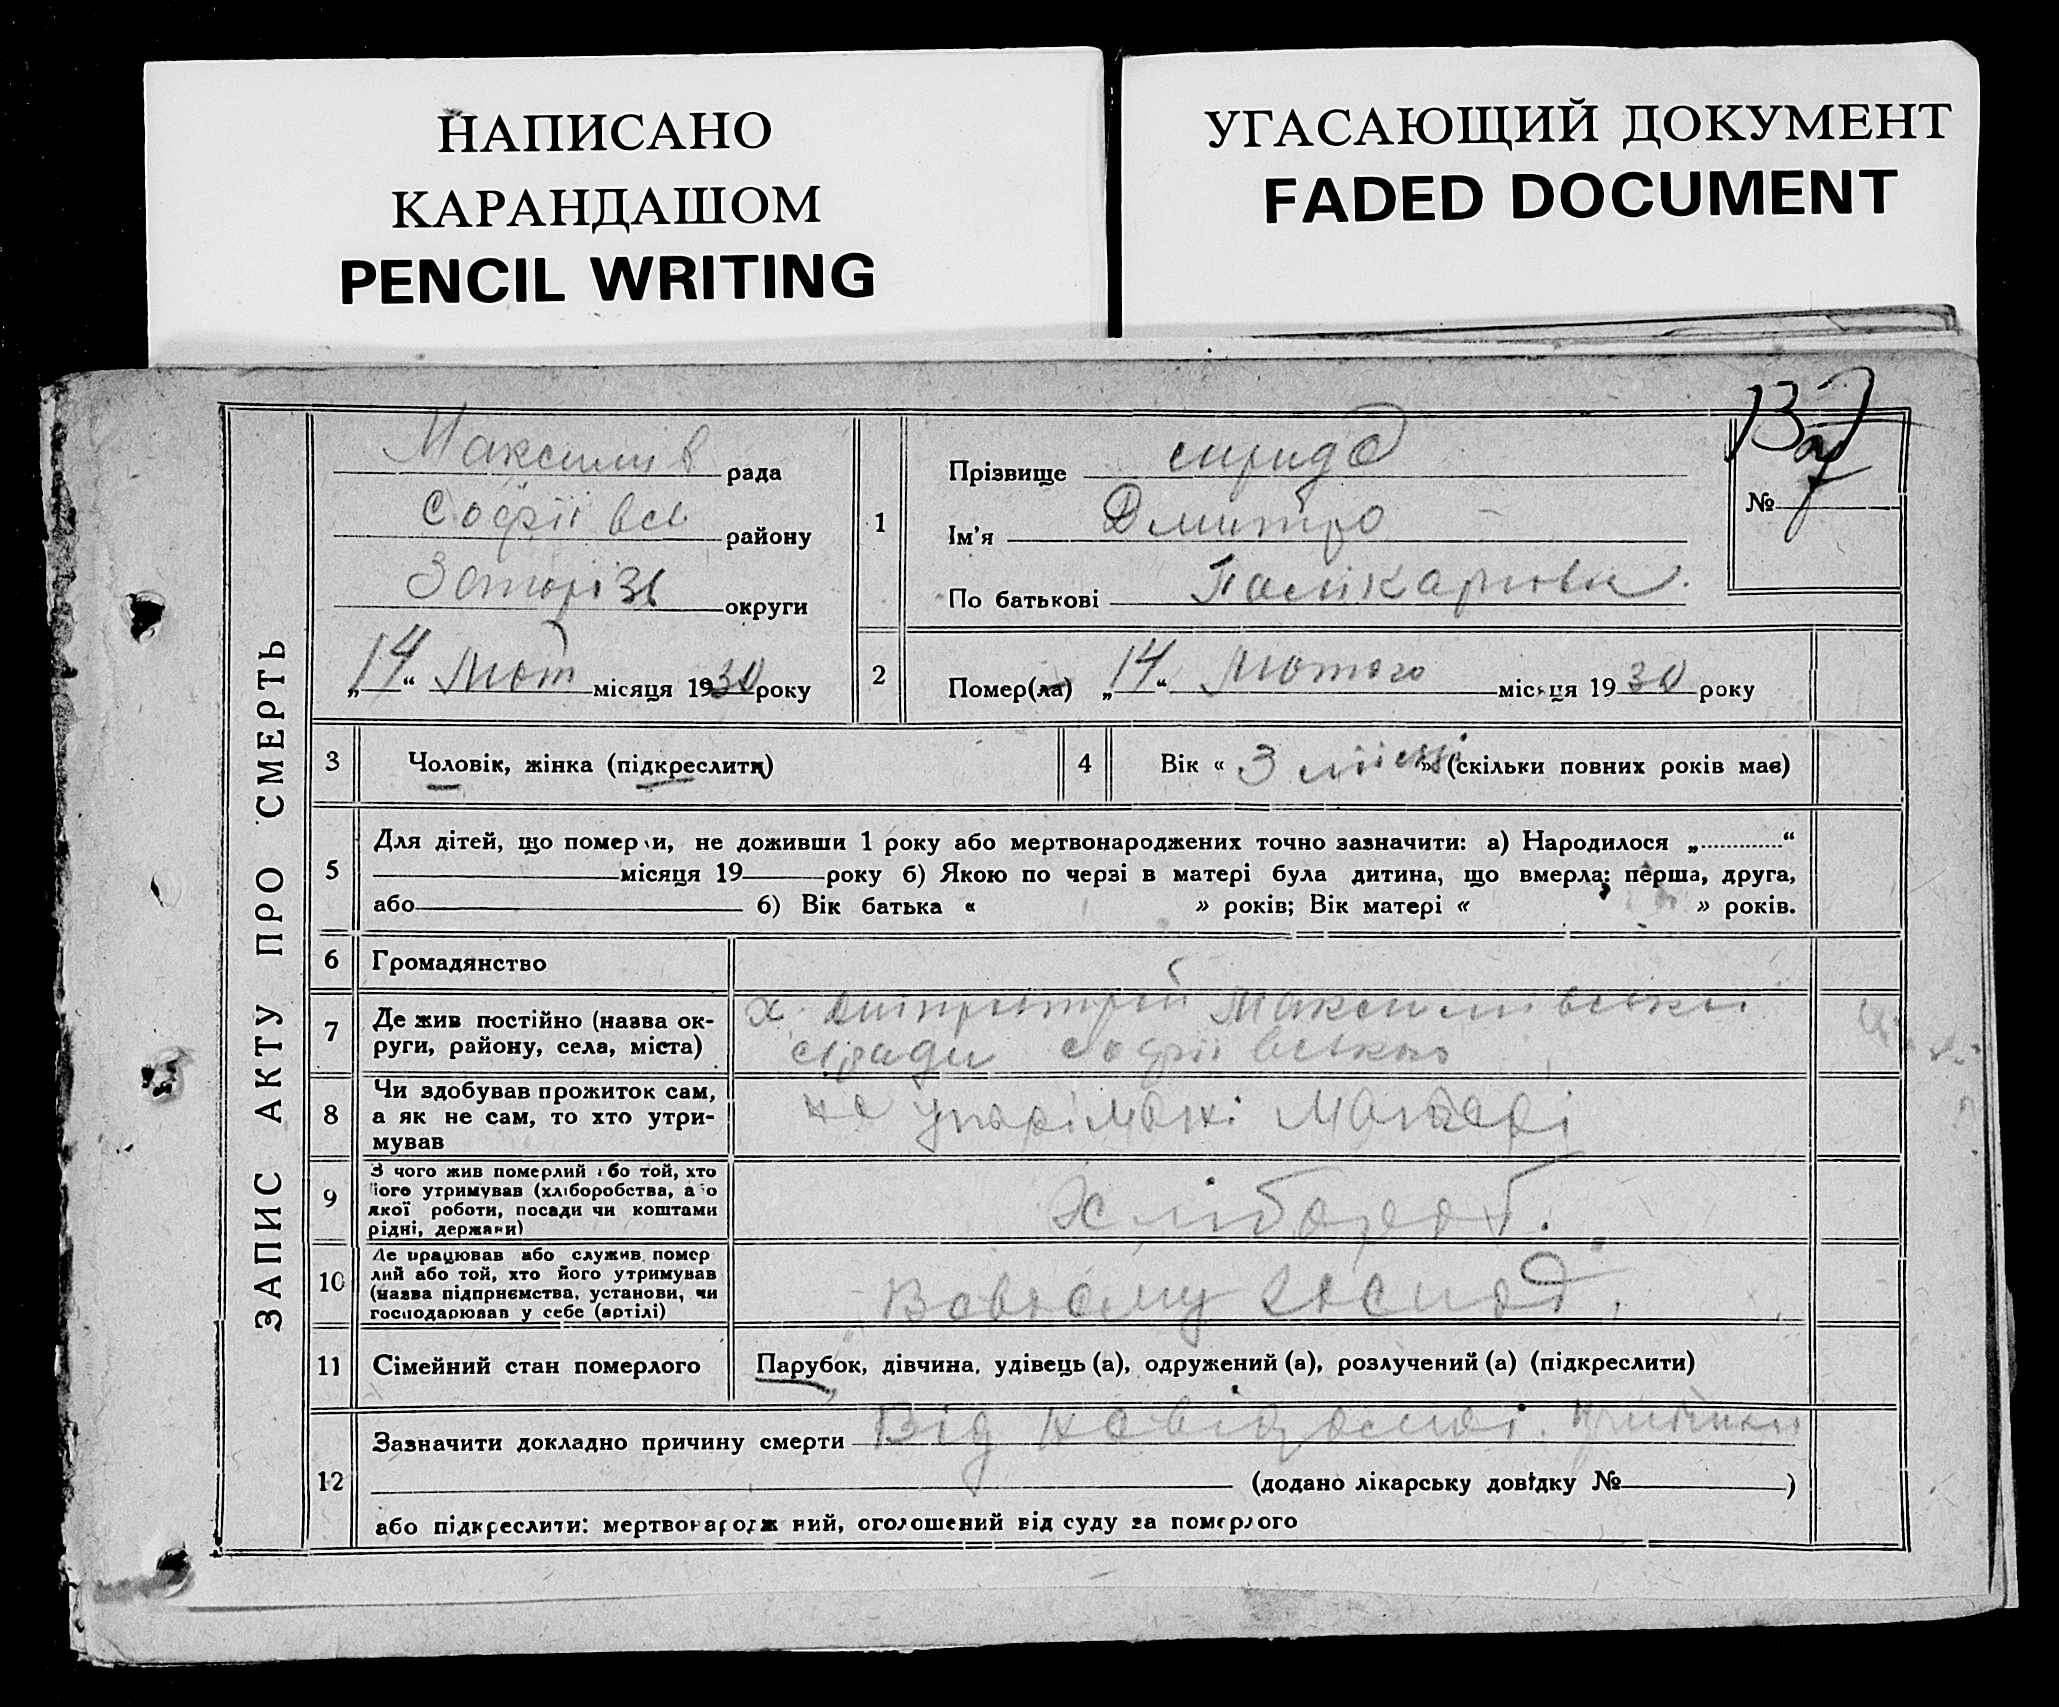 НАПИСАНО
КАРАНДАШОМ
PENCIL WRITING
УГАСАЮЩИЙ ДОКУМЕНТ
FADED DOCUMENT
ЗАПИС АКТУ ПРО СМЕРТЬ
Максимів рада
Софіївсь району
округи
„14“ Лют місяця 1930 року
1
Прізвище
Ім'я Дмитро
По батькові
№
2
Помер(ла) „14“ Лютого місяця 1930 року
3 Чоловік, жінка (підкреслити)
4 Вік « 3 » (скільки повних років має)
5
Для дітей, що померли, не доживши 1 року або мертвонароджених точно зазначити: а) Народилося „ “
місяця 19 року б) Якою по черзі в матері була дитина, що вмерла: перша, друга,
або б) Вік батька « » років; Вік матері « » років.
6 Громадянство
7
Де жив постійно (назва ок-
руги, району, села, міста)
х. Максимівської
с/ради Софіївсько
8
Чи здобував прожиток сам,
а як не сам, то хто утри-
мував
на утрімані Матері
9
З чого жив померлий або той, хто
його утримував (хліборобства, або
якої роботи, посади чи коштами
рідні, держави)
Хлібороб.
10
Де працював або служив помер
лий або той, хто його утримував
(назва підпрнємства, установи, чи
господарював у себе (артілі)
господ.
11 Сімейний стан померлого
Парубок, дівчина, удівець (а), одружений (а), розлучений (а) (підкреслити)
12
Зазначити докладно причину смерти Від
(додано лікарську довідку № )
або підкреслити: мертвонароджений, оголошений від суду за померлого